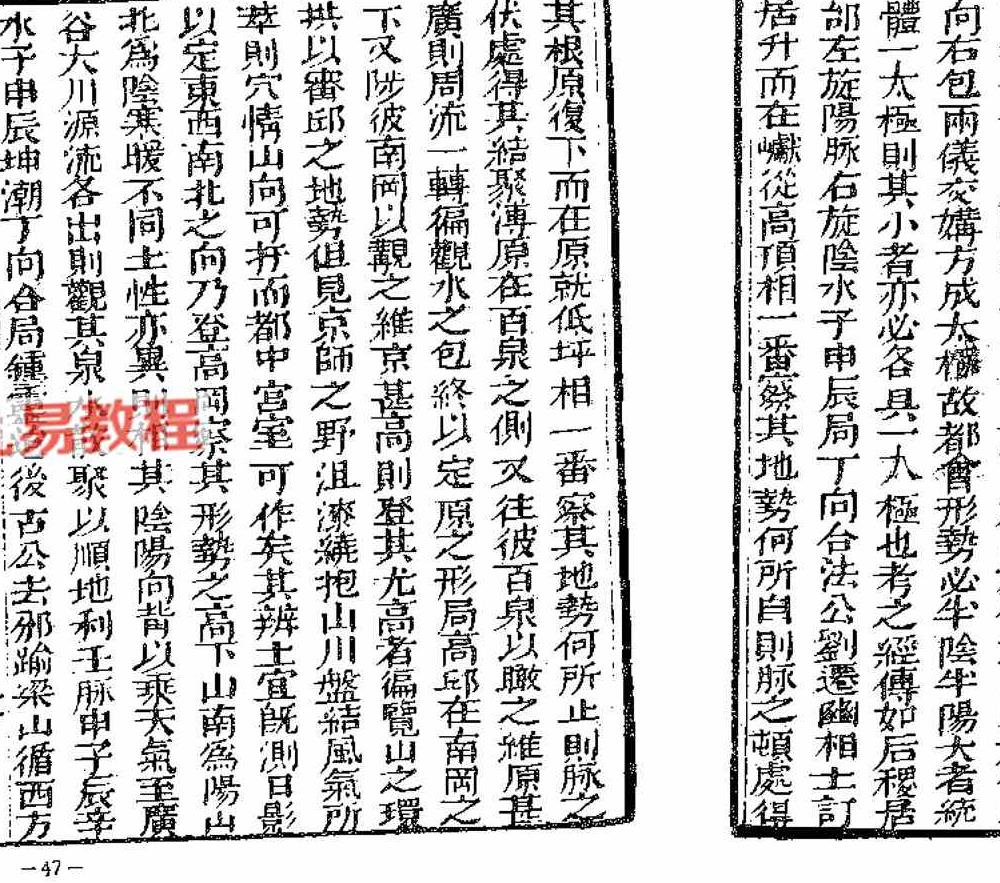 向右包兩儀交媾方成太極故都會形勢必半陰半陽大者統
體一太極則其小者亦必各具一太極也考之經傳如后稷居
邰左旋陽脉右旋陰水子申辰局丁向合法公劉遷豳相土訂
居升而在巘從高頂相一番察其地勢何所自則脉之頓處得
其根原復下而在原就低坪相一番察其地勢何所止則脉之
伏處得其結聚溥原在百泉之側又往彼百泉以瞰之維原甚
廣則周流一轉徧觀水之包終以定原之形局高邱在南岡之
下又陟彼南岡以觀之維京甚高則登其尤高者徧覽山之環
拱以審邱之地勢但見京師之野沮漆繞抱山川盤結風氣所
萃則穴情山向可扦而都中宮室可作矣其辨土宜旣測日影
以定東西南北之向乃登高岡察其形勢之高下山南爲陽山
北爲陰寒暖不同土性亦異則相其陰陽向背以乘天氣至廣
谷大川源流各出則觀其泉水散聚以順地利壬脉申子辰辛
水子申辰坤潮丁向合局鍾後古公去邠踰梁山循西方
易教程
—47—